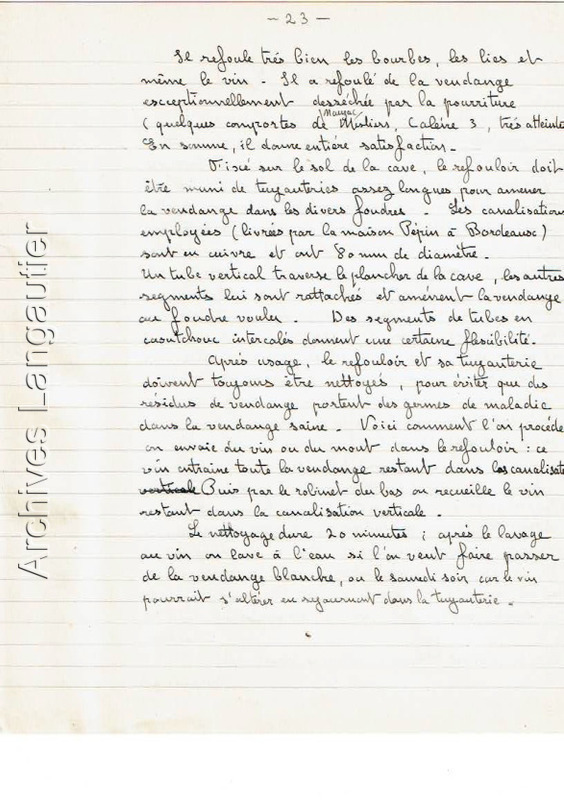 - 23 -
Il refoule très bien les bourbes, les lies et
même le vin - Il a refoulé de la vendange
exceptionnellement desséchée par la pourriture
Mauzac
(quelques comportes de Mistiers, Calère 3, très atteinte
En somme, il donne entière satisfaction.
Fixé sur le sol de la cave, le refouloir doit
être muni de tuyauteries assez longues pour amener
la vendange dans les divers foudres - Les canalisations
employées (livrées par la maison Pépin à Bordeaux)
sont en cuivre et ont 80 mm de diamètre.
Un tube vertical traverse le plancher de la cave, les autres
segments lui sont rattachés et amènent la vendange
au foudre voulu. Des segments de tubes en
caoutchouc intercalés donnent une certaine flexibilité.
Après usage, le refouloir et sa tuyauterie
doivent toujours être nettoyés, pour éviter que des
résidus de vendange portent des germes de maladie
dans la vendange saine - Voici comment l'on procède
on envoie du vin ou du mout dans le refouloir : ce
vin entraine toute la vendange restant dans les canalisat
verticale Puis par le robinet du bas on recueille le vin
restant dans la canalisation verticale.
Le nettoyage dure 20 minutes ; après le lavage
au vin on lave à l'eau si l'on veut faire passer
de la vendange blanche, ou le samedi soir car le vin
pourrait s'altérer en séjournant dans la tuyauterie.
Archives Langautier